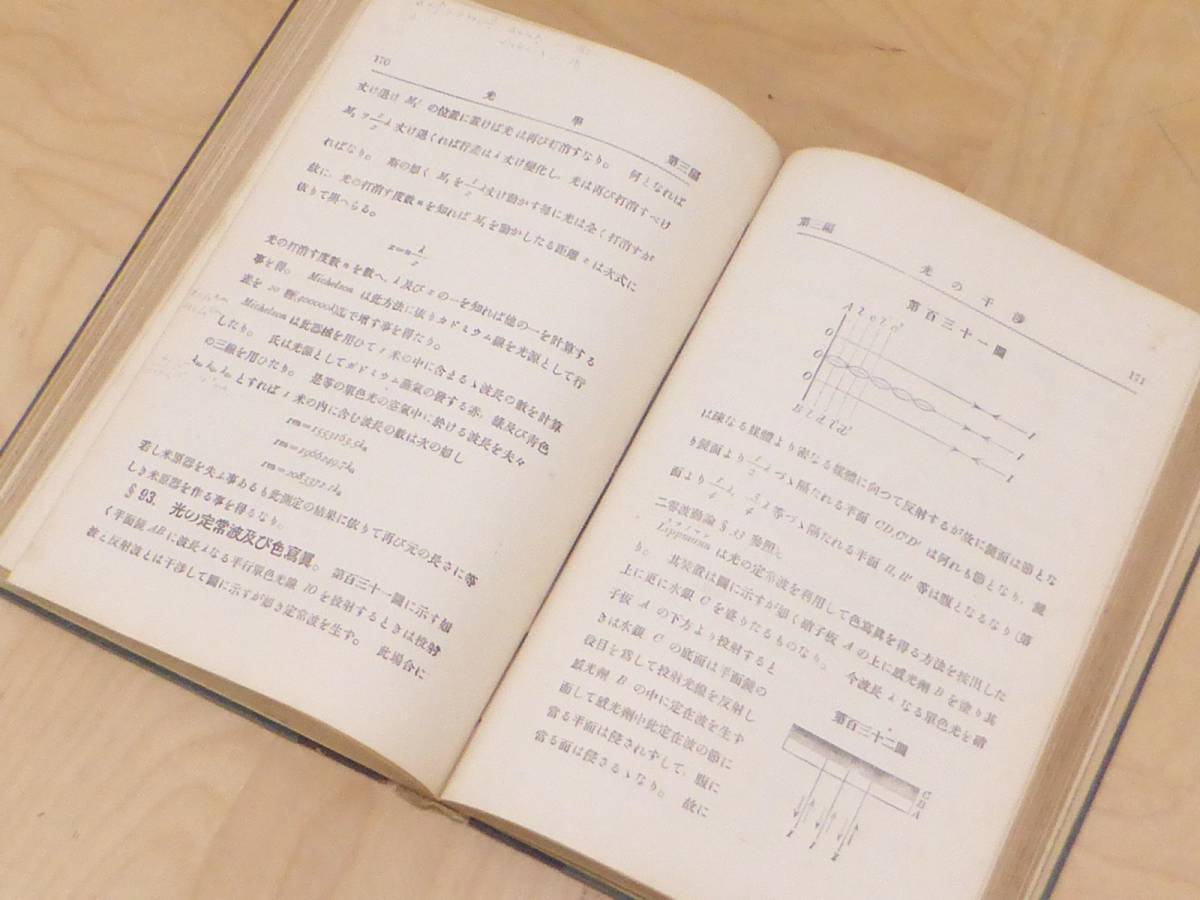 170
光 學
第三編
丈け退け M₁′ の位置に置けば光は再び打消すなり。 何となれば
M₁ ヲ λ/2 丈け退くれば行差は λ 丈け變化し、光は再び打消すべけ
ればなり。 斯の如く M₁ を λ/2 丈け動かす每に光は全く打消すが
故に、光の打消す度數 n を知れば M₁ を動かしたる距離 x は次式に
依りて與へらる。
x=n λ/2
光の打消す度數 n を數へ、λ 及び x の一を知れば他の一を計算する
事を得。 Michelson は此方法に依りカドミウム線を光源として行
差を 20 糎(400000λ)迄で增す事を得たり。
Michelson は此器械を用ひて 1 米の中に含まるゝ波長の數を計算
したり。 氏は光源としてカドミウム蒸氣の發する赤、綠及び靑色
の三線を用ひたり。 是等の單色光の空氣中に於ける波長を夫々
とすれば 1 米の內に含む波長の數は次の如し
1m=1553163.5λ
1m=1966249.7λ
1m=2083372.1λ
若し米原器を失ふ事あるも此測定の結果に依りて再び元の長さに等
しき米原器を作る事を得るなり。
§ 93. 光の定常波及び色寫眞。 第百三十一圖に示す如
く平面鏡 AB に波長 λ なる平行單色光線 IO を投射するときは投射
波と反射波とは干涉して圖に示すが如き定常波を生ず。 此場合に
第三編
光 の 干 涉
171
第百三十一圖
A
O
O
O
B
I
I
I
は疎なる媒體より密なる媒體に向つて反射するが故に鏡面は節とな
り鏡面より λ/2 づゝ隔たれる平面 CD, C′D′ は何れも節となり、鏡
面より λ/4, 3λ/4 等づゝ隔たれる平面 ll, ll′ 等は腹となるなり(第
二零波動論 § 33 參照)。
リップマン
Lippmann は光の定常波を利用して色寫眞を得る方法を按出した
り。 其裝置は圖に示すが如く硝子板 A の上に感光劑 B を塗り其
上に更に水銀 C を盛りたるものなり。 今波長 λ なる單色光を硝
子板 A の下方より投射すると
きは水銀 C の底面は平面鏡の
役目を爲して投射光線を反射し
感光劑 B の中に定在波を生ず
而して感光劑中此定在波の節に
當る平面は侵されずして、腹に
當る面は侵さるゝなり。 故に
第百三十二圖
C
B
A